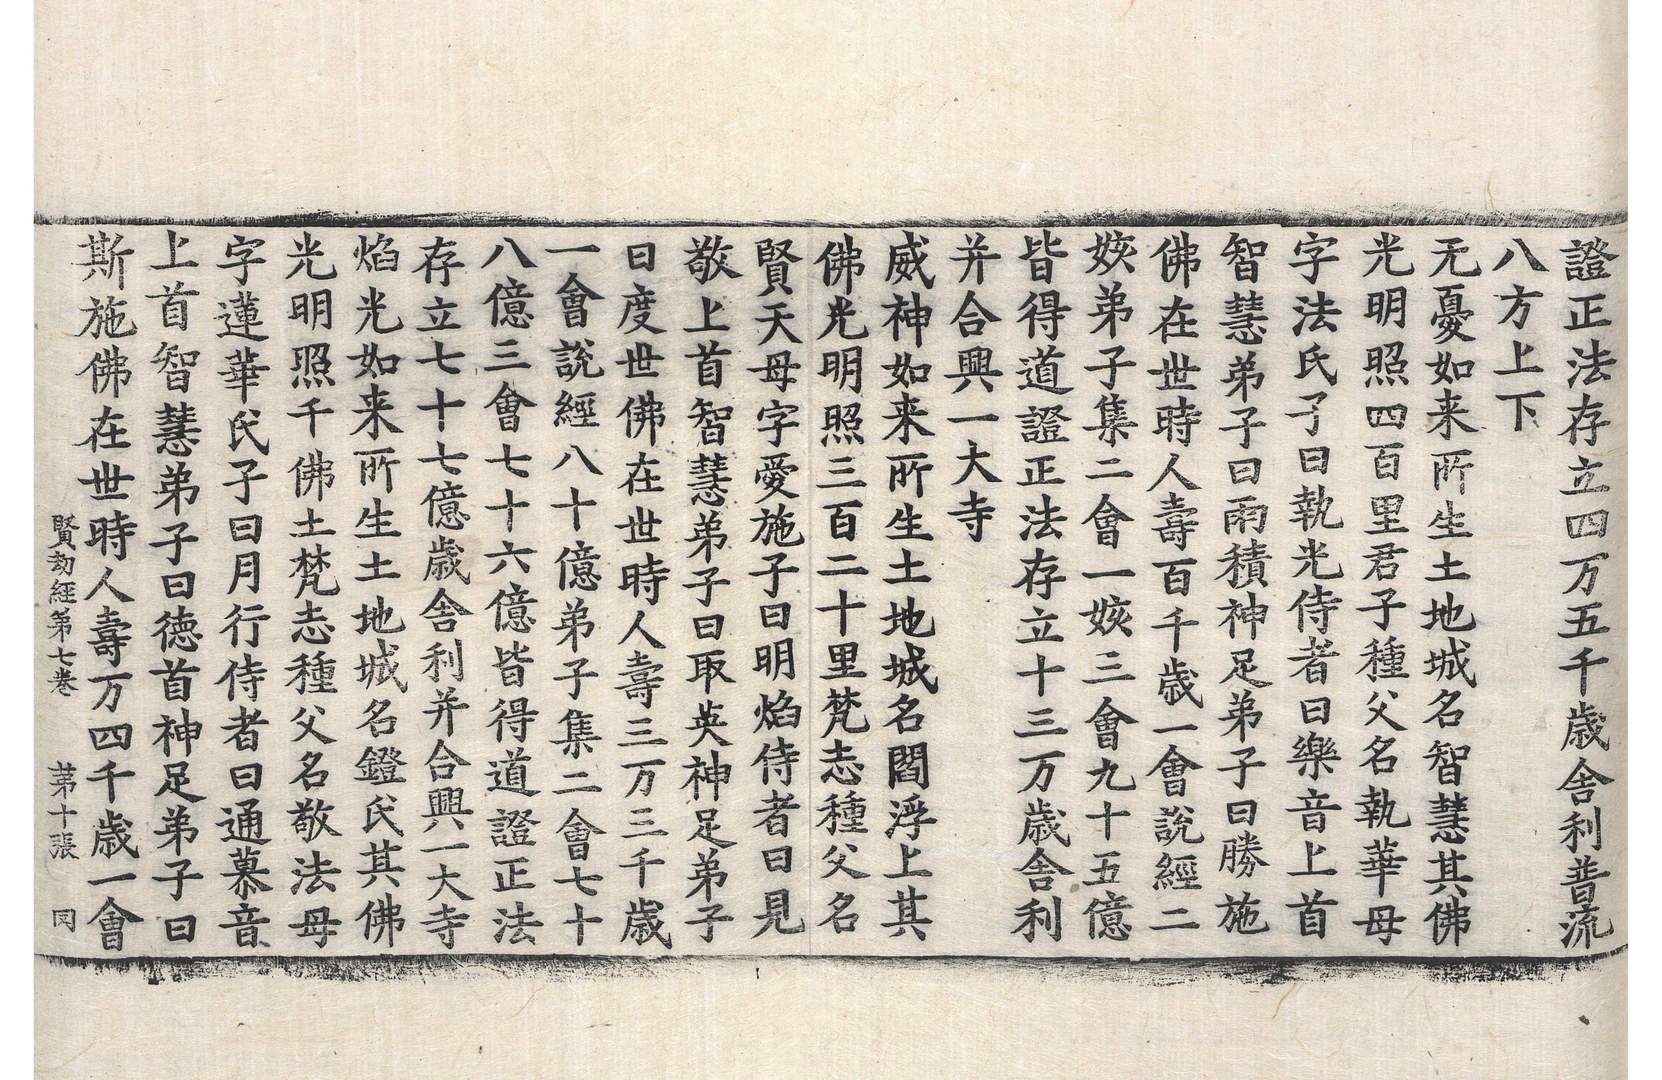 證正法存立四万五千歳舎利普流
八方上下
无憂如来所生土地城名智慧其佛
光明照四百里君子種父名執華母
字法氏子曰執光侍者曰樂音上首
智慧弟子曰雨積神足弟子曰勝施
佛在世時人壽百千歳一會說經二
姟弟子集二會一姟三會九十五億
皆得道證正法存立十三万歳舎利
并合興一大寺
威神如来所生土地城名閻浮上其
佛光明照三百二十里梵志種父名
賢天母字愛施子曰明焰侍者曰見
敬上首智慧弟子曰取英神足弟子
曰度世佛在世時人壽三万三千歳
一會說經八十億弟子集二會七十
八億三會七十六億皆得道證正法
存立七十七億歳舎利并合興一大寺
焰光如来所生土地城名鐙氏其佛
光明照千佛土梵志種父名敬法母
字蓮華氏子曰月行侍者曰通慕音
上首智慧弟子曰徳首神足弟子曰
斯施佛在世時人壽万四千歳一會
賢劫經第七卷 第十張 罔